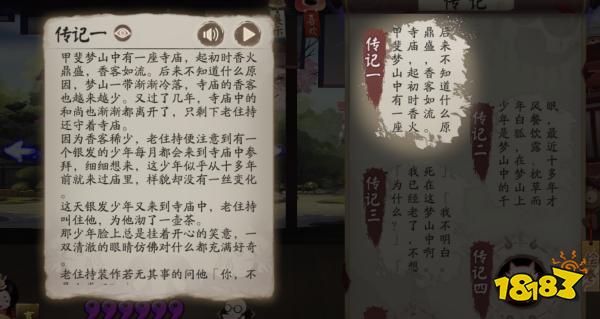 传记一
甲斐梦山中有一座寺庙，起初时香火
鼎盛，香客如流。后来不知道什么原
因，梦山一带渐渐冷落，寺庙的香客
也越来越少。又过了几年，寺庙中的
和尚也渐渐都离开了，只剩下老住持
还守着寺庙。
因为香客稀少，老住持便注意到有一
个银发的少年每月都会来到寺庙中参
拜，细细想来，这少年似乎从十多年
前就来过庙里，样貌却没有一丝变化
。
这天银发少年又来到寺庙中，老住持
叫住他，为他沏了一壶茶。
那少年脸上总是挂着开心的笑意，一
双清澈的眼睛仿佛对什么都充满好奇
。
老住持装作若无其事的问他「你，不
传记
传记一
甲斐梦山中有一座
寺庙，起初时香火
鼎盛，香客如流。
后来不知道什么原
传记二
少年是梦山中的千
年白狐，在梦山上
风餐饮露、枕草而
眠，最近十多年才
传记三
「为什么？」
「我已经老了，不想
死在这梦山中啊。
「我不明白。」
传记四
喜欢
999999
18183